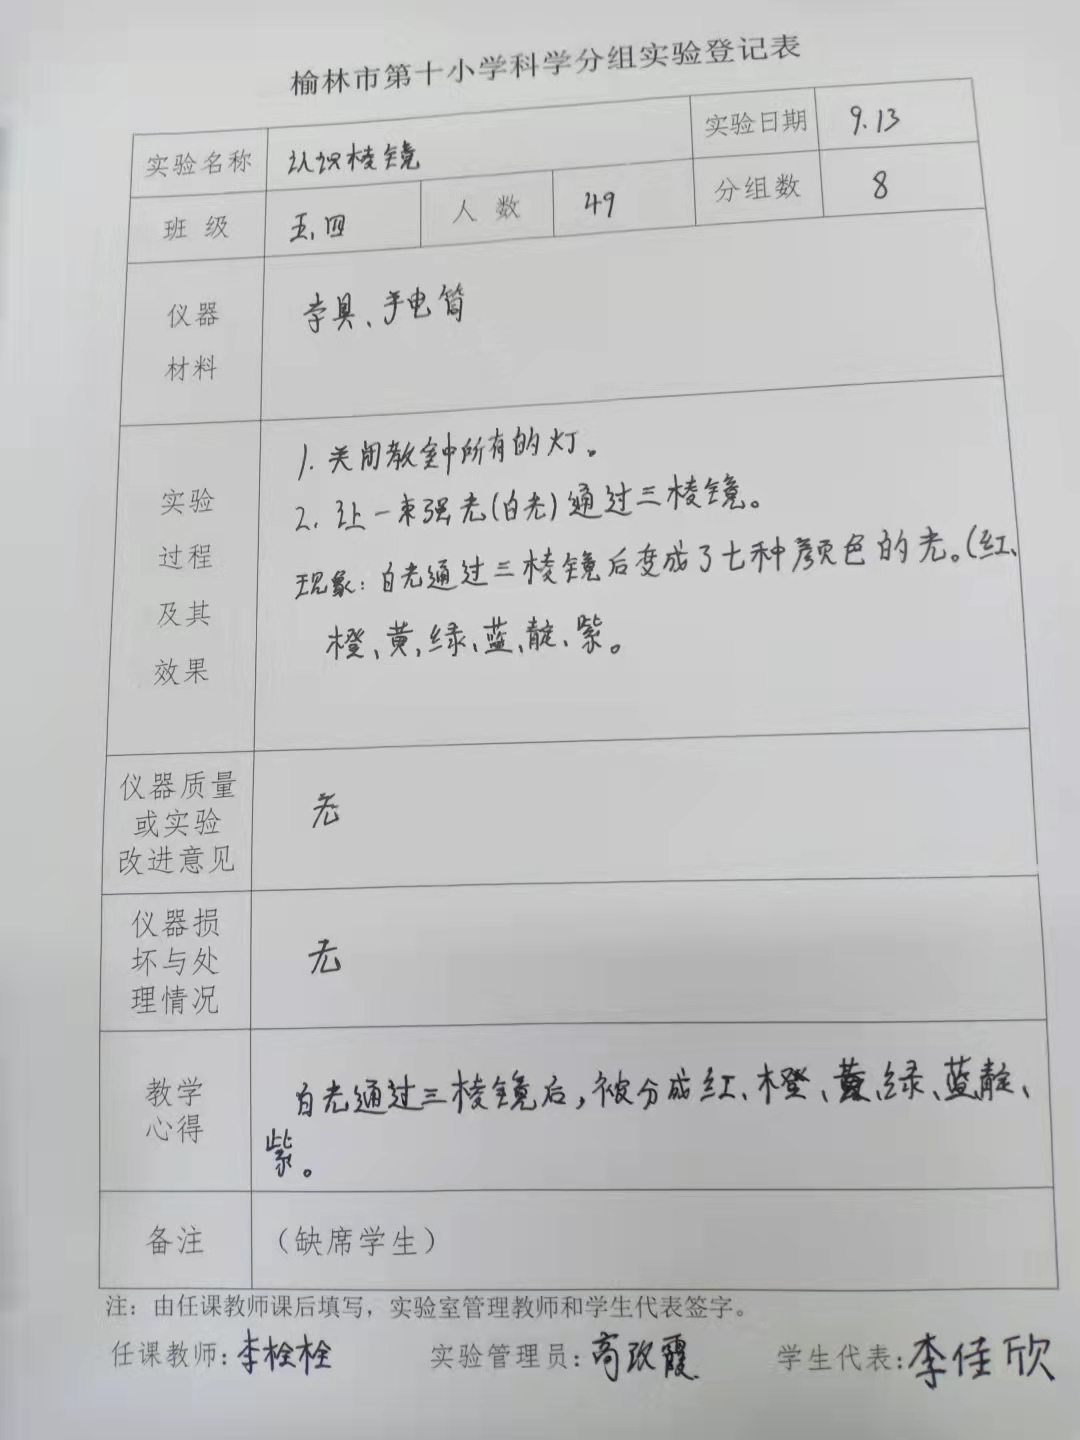 榆林市第十小学科学分组实验登记表
实验名称 认识棱镜 实验日期 9.13
班 级 五、四 人 数 49 分组数 8
仪器
材料
学具、手电筒
实验
过程
及其
效果
1. 关闭教室中所有的灯。
2. 让一束强光(白光)通过三棱镜。
现象：白光通过三棱镜后变成了七种颜色的光。(红、
橙、黄、绿、蓝、靛、紫。
仪器质量
或实验
改进意见
无
仪器损
坏与处
理情况
无
教学
心得
白光通过三棱镜后，被分成红、橙、黄、绿、蓝、靛、
紫。
备注 （缺席学生）
注：由任课教师课后填写，实验室管理教师和学生代表签字。
任课教师：李栓栓 实验管理员：高改霞 学生代表：李佳欣